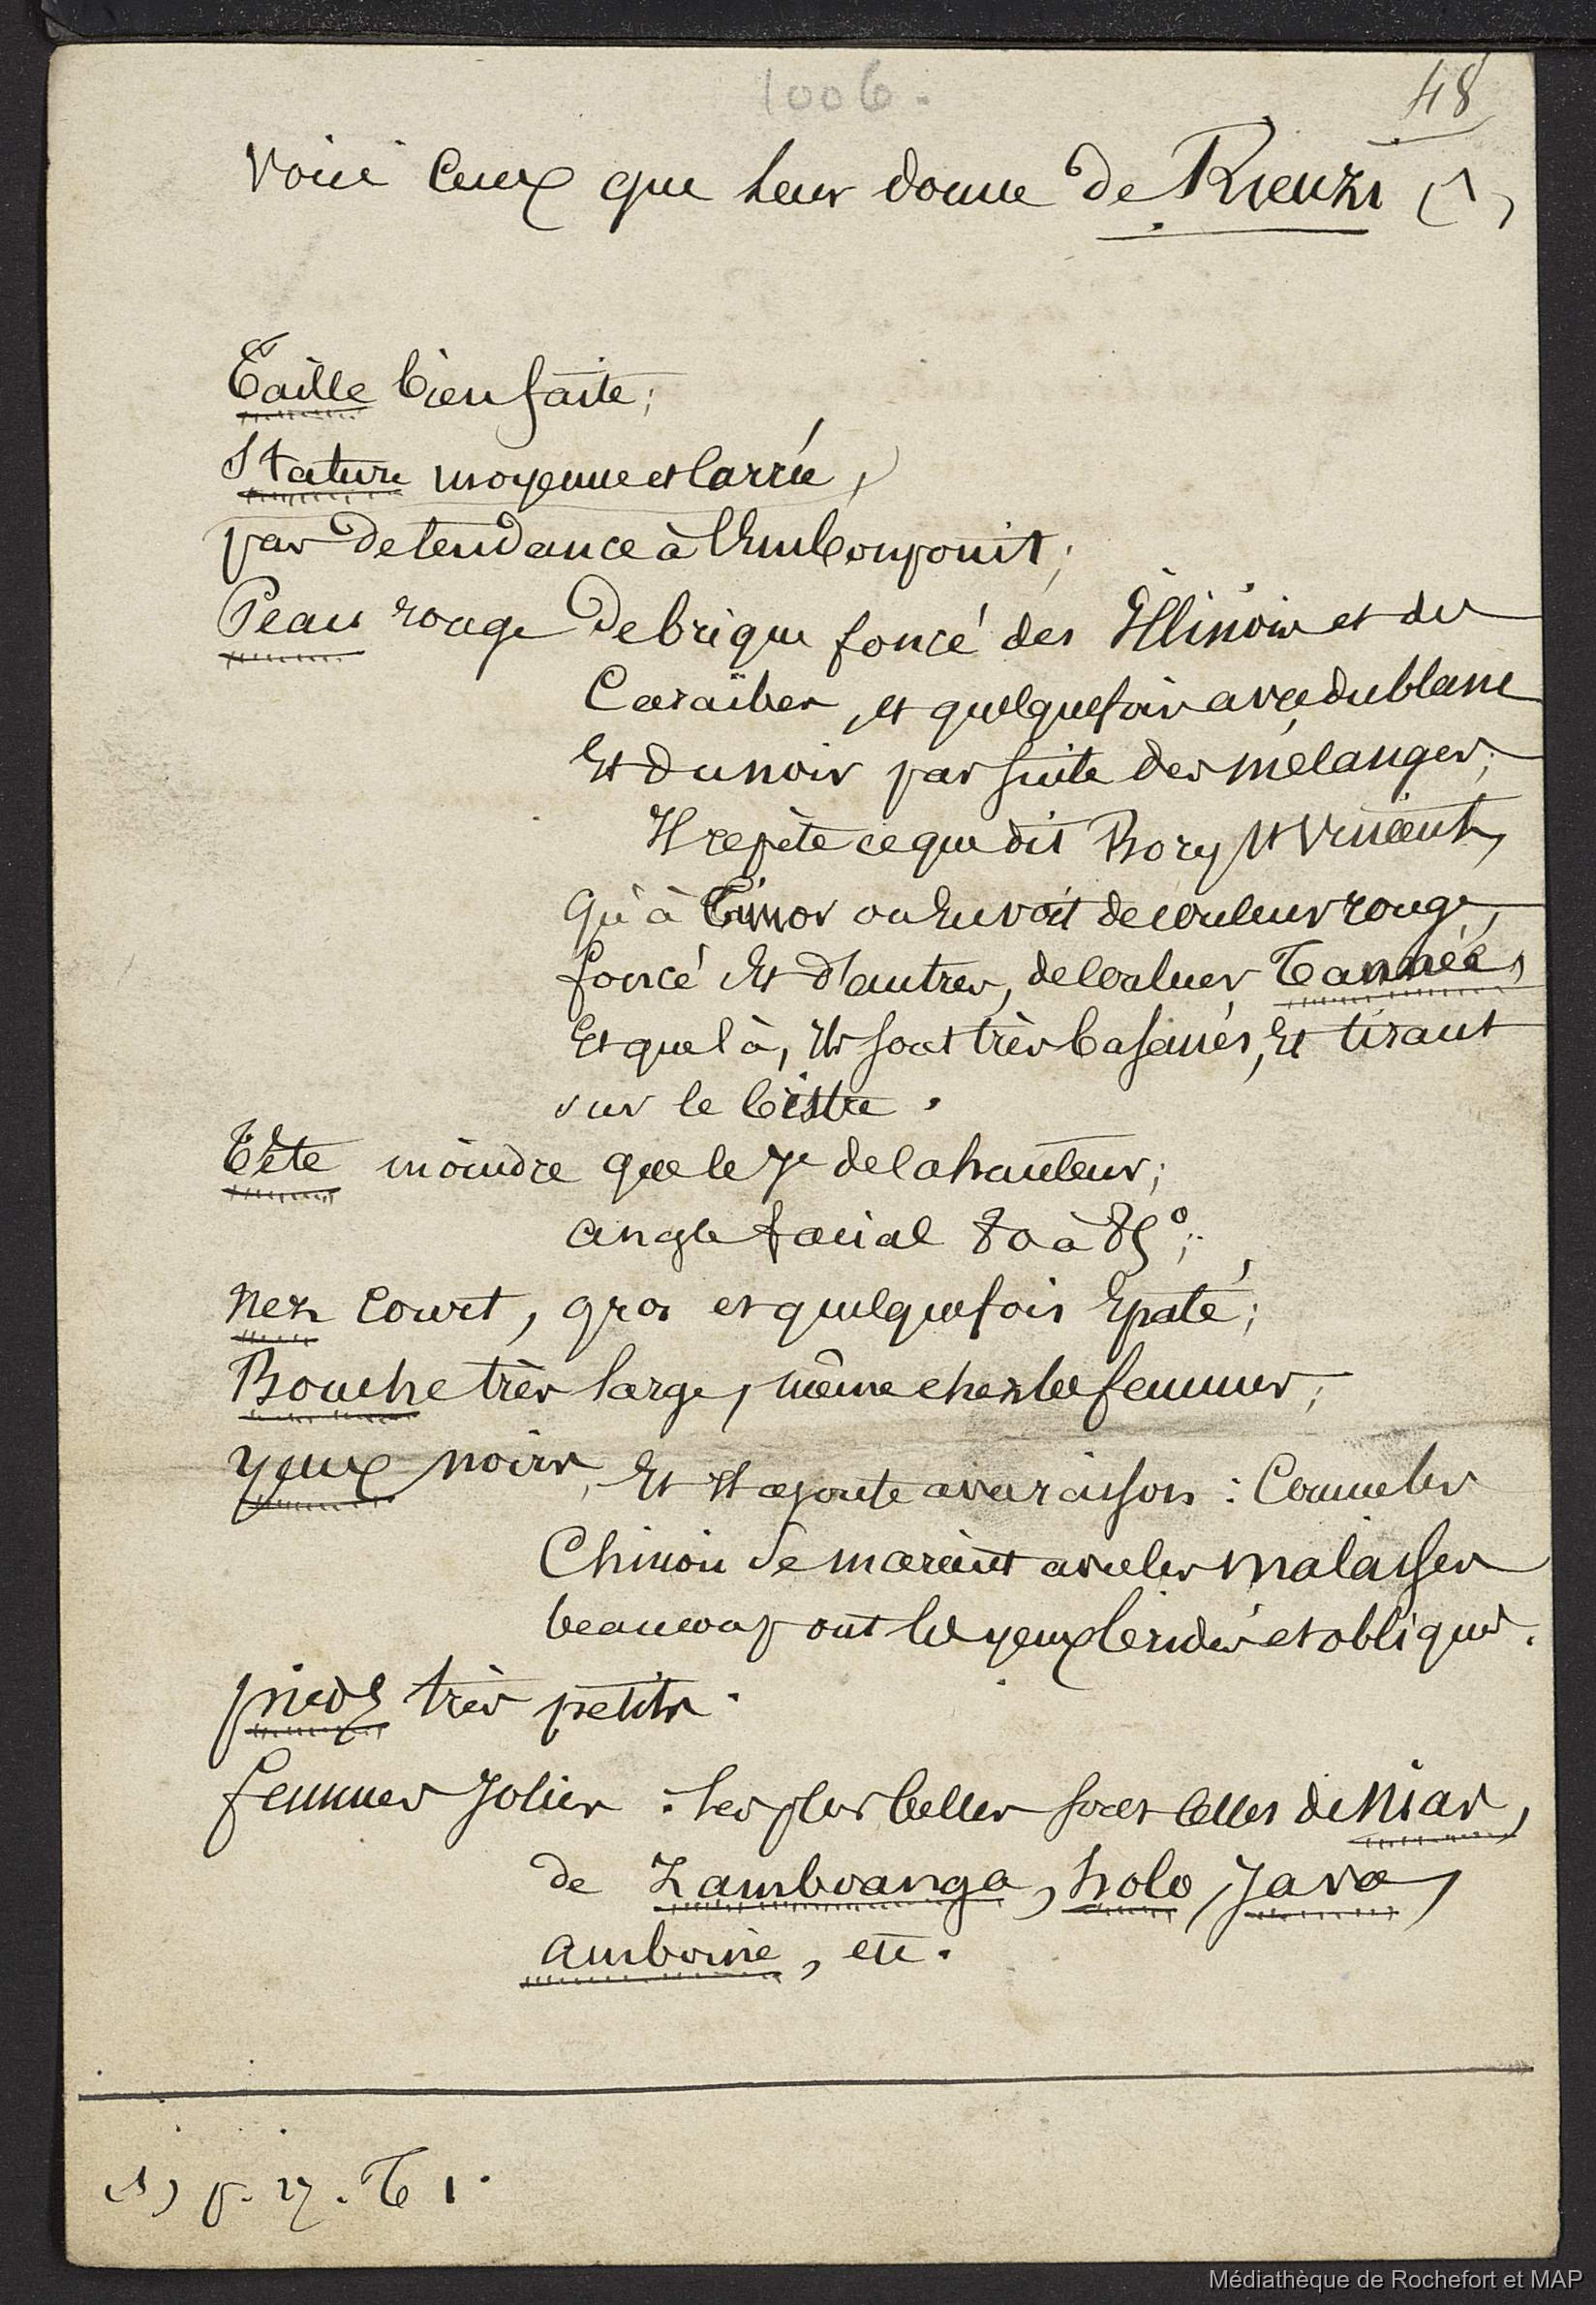 1006.
48
Voici ceux que leur donne de Rienzi (1)
Taille bien faite;
Stature moyenne et carrée,
pas de tendance à l'Embonpoint;
Peau rouge de brique foncé des Illinois et des
Caraïbes, et quelquefois avec du blanc
Et du noir par suite des mélanges;
Il repète ce que dit Bory St Vincent,
Qu'à Timor on En voit de couleur rouge,
foncé Et d'autres, de couleur Tannée,
Et que là, Ils sont très basanés, Et tirant
sur le bistre.
Tête moindre que le 7e de la hauteur;
angle facial 80 à 85°;
Nez court, gros et quelquefois Epaté;
Bouche très large, même chez les femmes;
yeux noirs, Et Il ajoute avec raison: Comme les
Chinois se marient avec les malaises
beaucoup ont les yeux bridés et obliques.
pieds très petits.
femmes Jolies: les plus belles sont celles de Nias,
de Zamboanga, holo, Java,
amboine, etc.
(1) p. 27. T 1.
Médiathèque de Rochefort et MAP